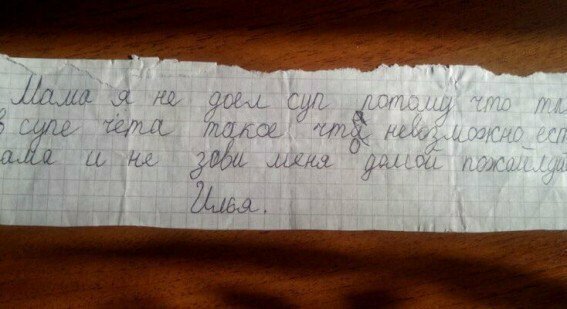 Мама я не доел суп потому что
в супе чета такое что невозможно ест
ама и не зови меня домой пожайлда
Илья.